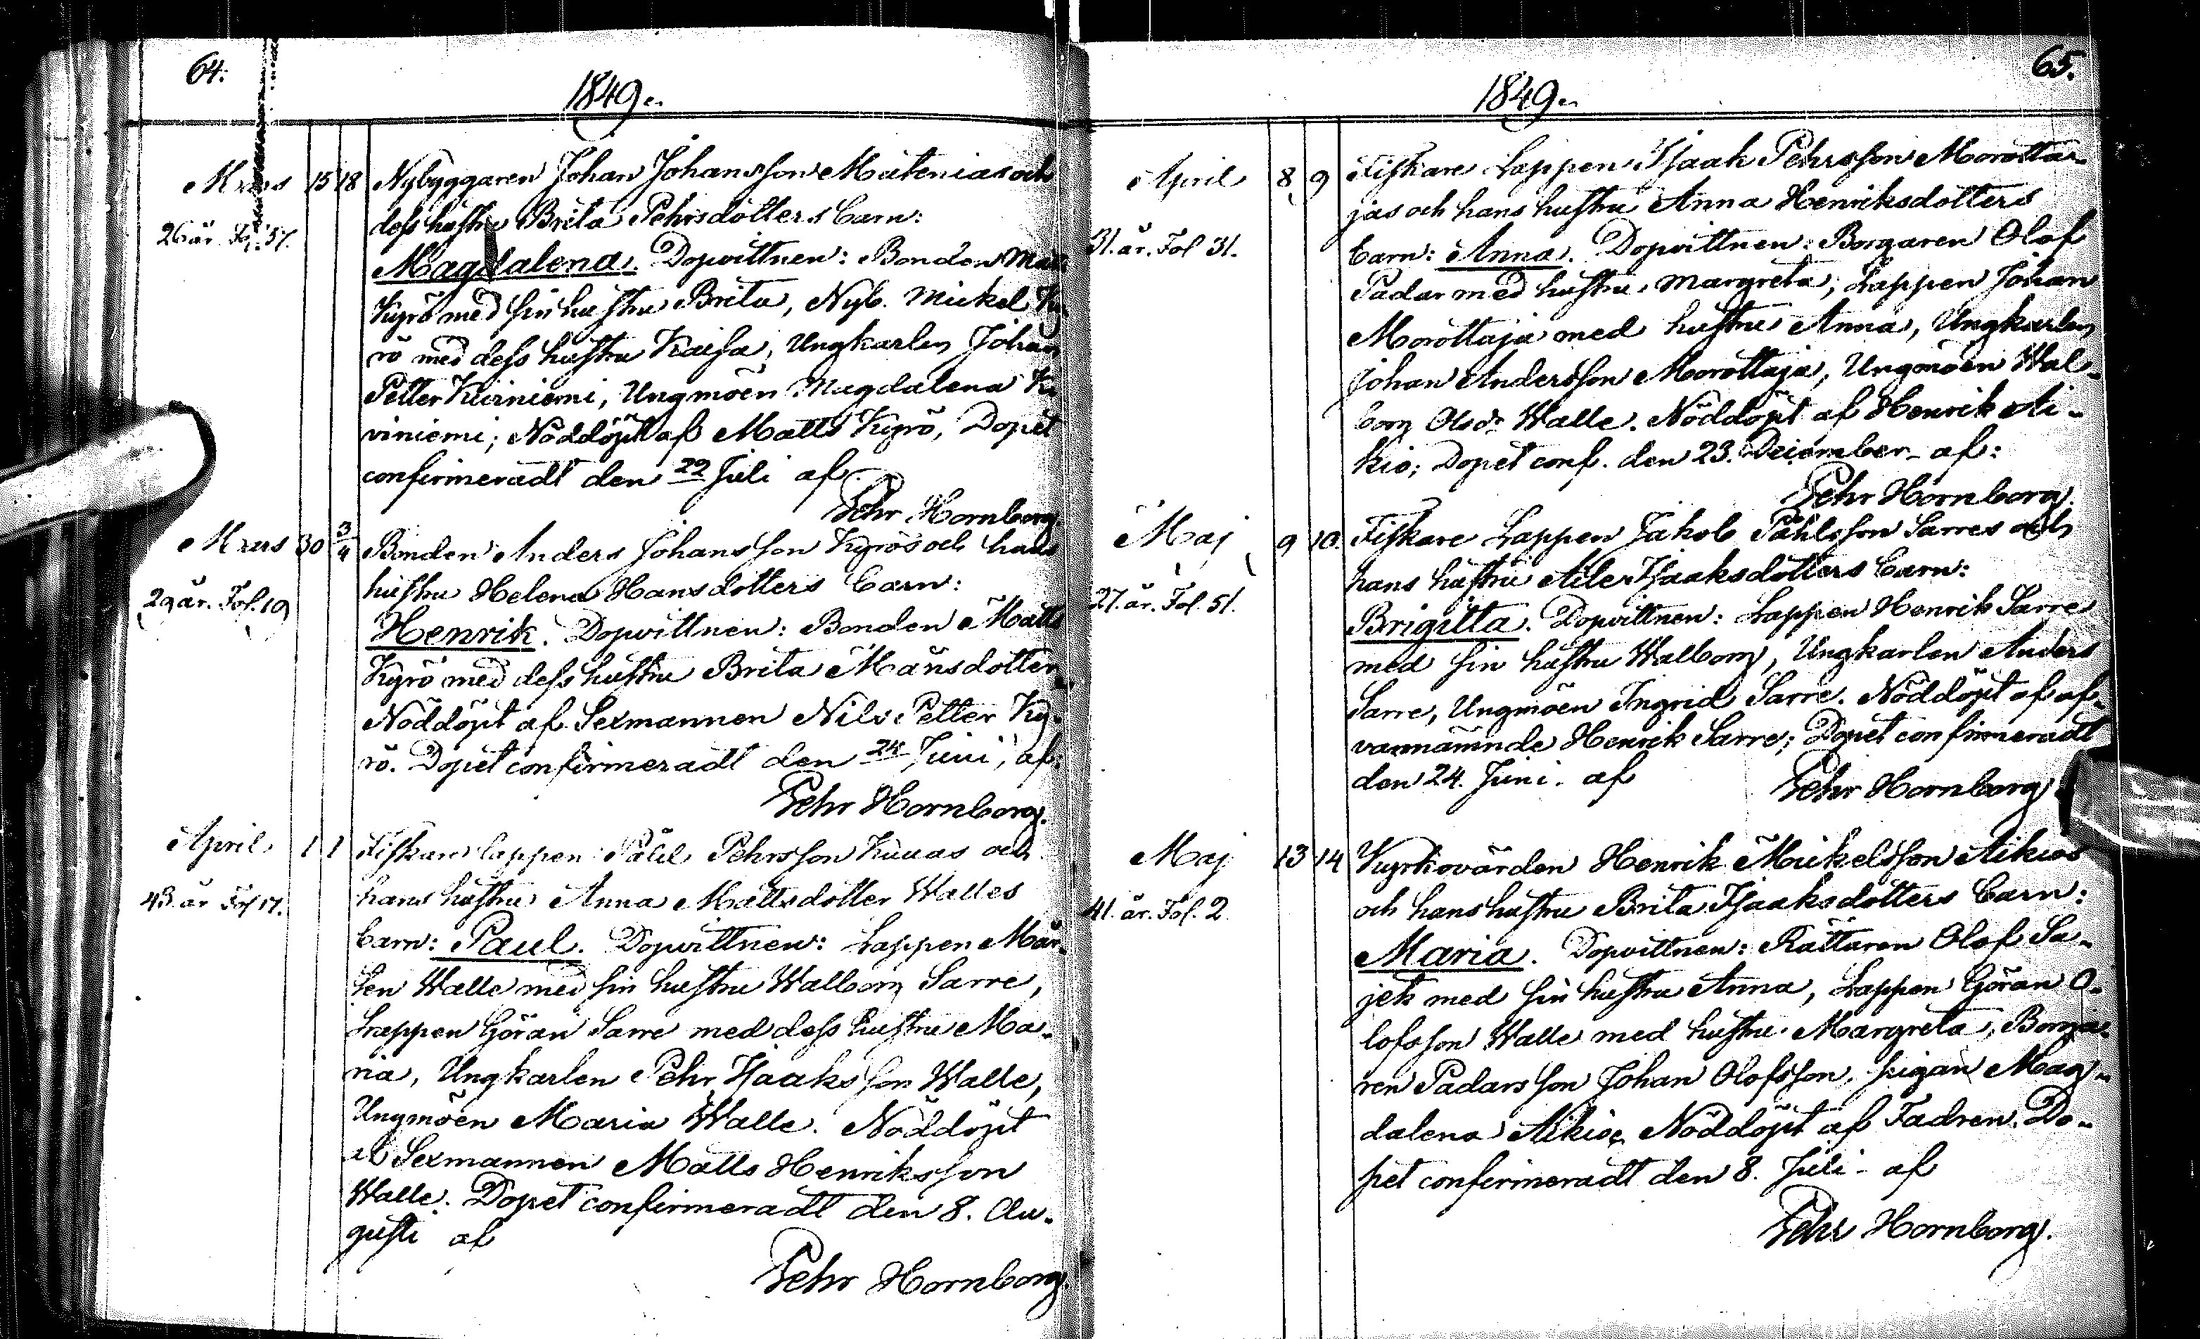 64.
1849.
Mars 15 18 Nybyggaren Johan Johansson Mätenias och
26 år. Fol. 57.
dess hustru Brita Pehrsdotters Barn:
Magdalena. Dopvittnen: Bonden Matts
Kyrö med sin hustru Brita, Nyb. Mickel Ky-
rö med dess hustru Kaisa, Ungkarlen Johan
Petter Kiviniemi, Ungmöen Magdalena Ki-
viniemi; Nöddöpt af Matts Kyrö, Dopet
confirmeradt den 22 Juli af
Pehr Hornborg.
Mars 30 3/4 Bonden Anders Johansson Kyrös och hans
29 år. Fol. 19
hustru Helena Hansdotters Barn:
Henrik. Dopvittnen: Bonden Matts
Kyrö med dess hustru Brita Månsdotter.
Nöddöpt af Sexmannen Nils Petter Ky-
rö. Dopet confirmeradt den 24 Juni, af:
Pehr Hornborg.
April 1 1 Fiskare lappen Påhl Pehrsson Kuuas och
43 år Fol 17.
hans hustru Anna Mattsdotter Walles
Barn: Paul. Dopvittnen: Lappen Mår-
ten Walle med sin hustru Walborg Sarre,
Lappen Göran Sarre med dess hustru Ma-
ria, Ungkarlen Pehr Isaaksson Walle,
Ungmöen Maria Walle. Nöddöpt
af Sexmannen Matts Henriksson
Walle. Dopet confirmeradt den 8. Au-
gusti af
Pehr Hornborg.
65.
1849.
April 8 9 Fiskare Lappen Isaak Pehrsson Morotta-
jas och hans hustru Anna Henriksdotters
31. år. Fol 31.
Barn: Anna. Dopvittnen: Borgaren Olof
Padar med hustru Margreta, Lappen Johan
Morottaja med hustru Anna, Ungkarlen
Johan Andersson Morottaja, Ungmöen Wal-
borg Olsdr Walle. Nöddöpt af Henrik Ai-
kio; Dopet conf. den 23. December af:
Pehr Hornborg.
Maj 9 10. Fiskare Lappen Jakob Påhlsson Sarres och
27. år. Fol. 51.
hans hustru Aile Isaaksdotters Barn:
Brigitta. Dopvittnen: Lappen Henrik Sarre
med sin hustru Walborg, Ungkarlen Anders
Sarre, Ungmöen Ingrid Sarre. Nöddöpt af of-
vannämnde Henrik Sarre; Dopet confirmeradt
den 24. Juni. af
Pehr Hornborg
Maj 13 14 Kyrkovärden Henrik Mickelsson Aikios
och hans hustru Brita Isaaksdotters Barn:
41. år. Fol. 2
Maria. Dopvittnen: Rättaren Olof Sa-
jek med sin hustru Anna, Lappen Göran O-
lofsson Walle med hustru Margreta, Borga-
ren Padars son Johan Olofsson, pigan Mag-
dalena Aikio, Nöddöpt af Fadren. Do-
pet confirmeradt den 8. Juli af
Pehr Hornborg.